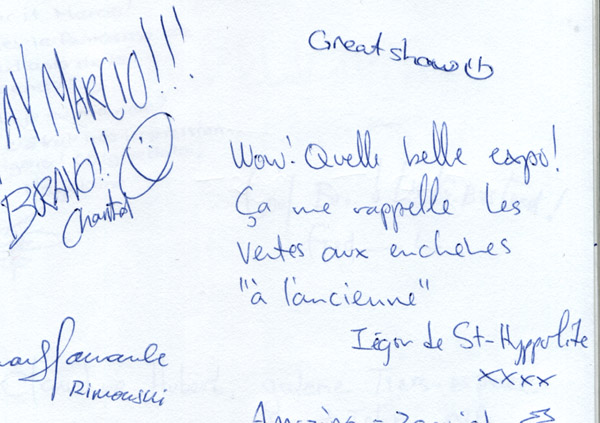 AY MARCIO!!!
BRAVO!!
Chantal
Great show
Wow! Quelle belle expo!
Ça me rappelle les
ventes aux enchères
"à l'ancienne"
Iégor de St-Hyppolite
xxxx
Rimouski